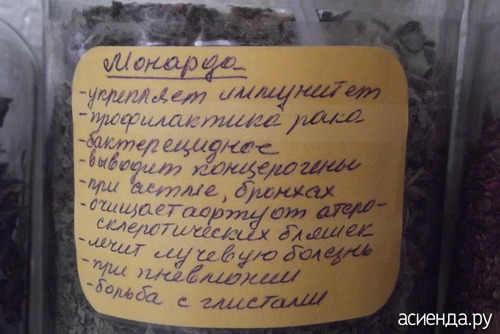 Монарда
-укрепляет иммунитет
-профилактика рака
-бактерецидное
-выводит концерогены
-при астме, бронхах
-очищает аорту от атеро-
склеротических бляшек
-лечит лучевую болезнь
-при пневмонии
-борьба с глистами
асиенда.ру